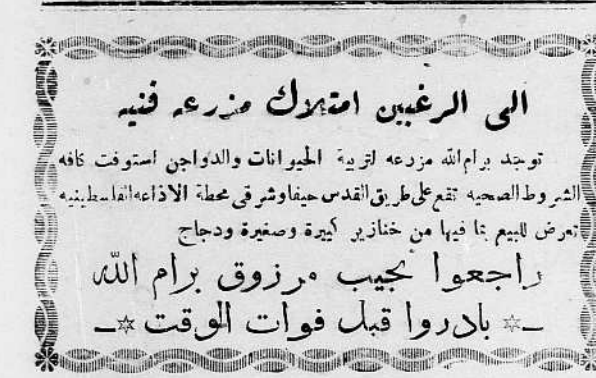 الى الرغبين امتلاك مزرعه فنيه
توجد برام الله مزرعه لتربية الحيوانات والدواجن استوفت كافه
الشروط الصحيه تقع على طريق القدس حيفا وشرقي محطة الاذاعه الفلسطينيه
تعرض للبيع بما فيها من خنازير كبيرة وصغيرة ودجاج
راجعوا نجيب مرزوق برام الله
بادروا قبل فوات الوقت